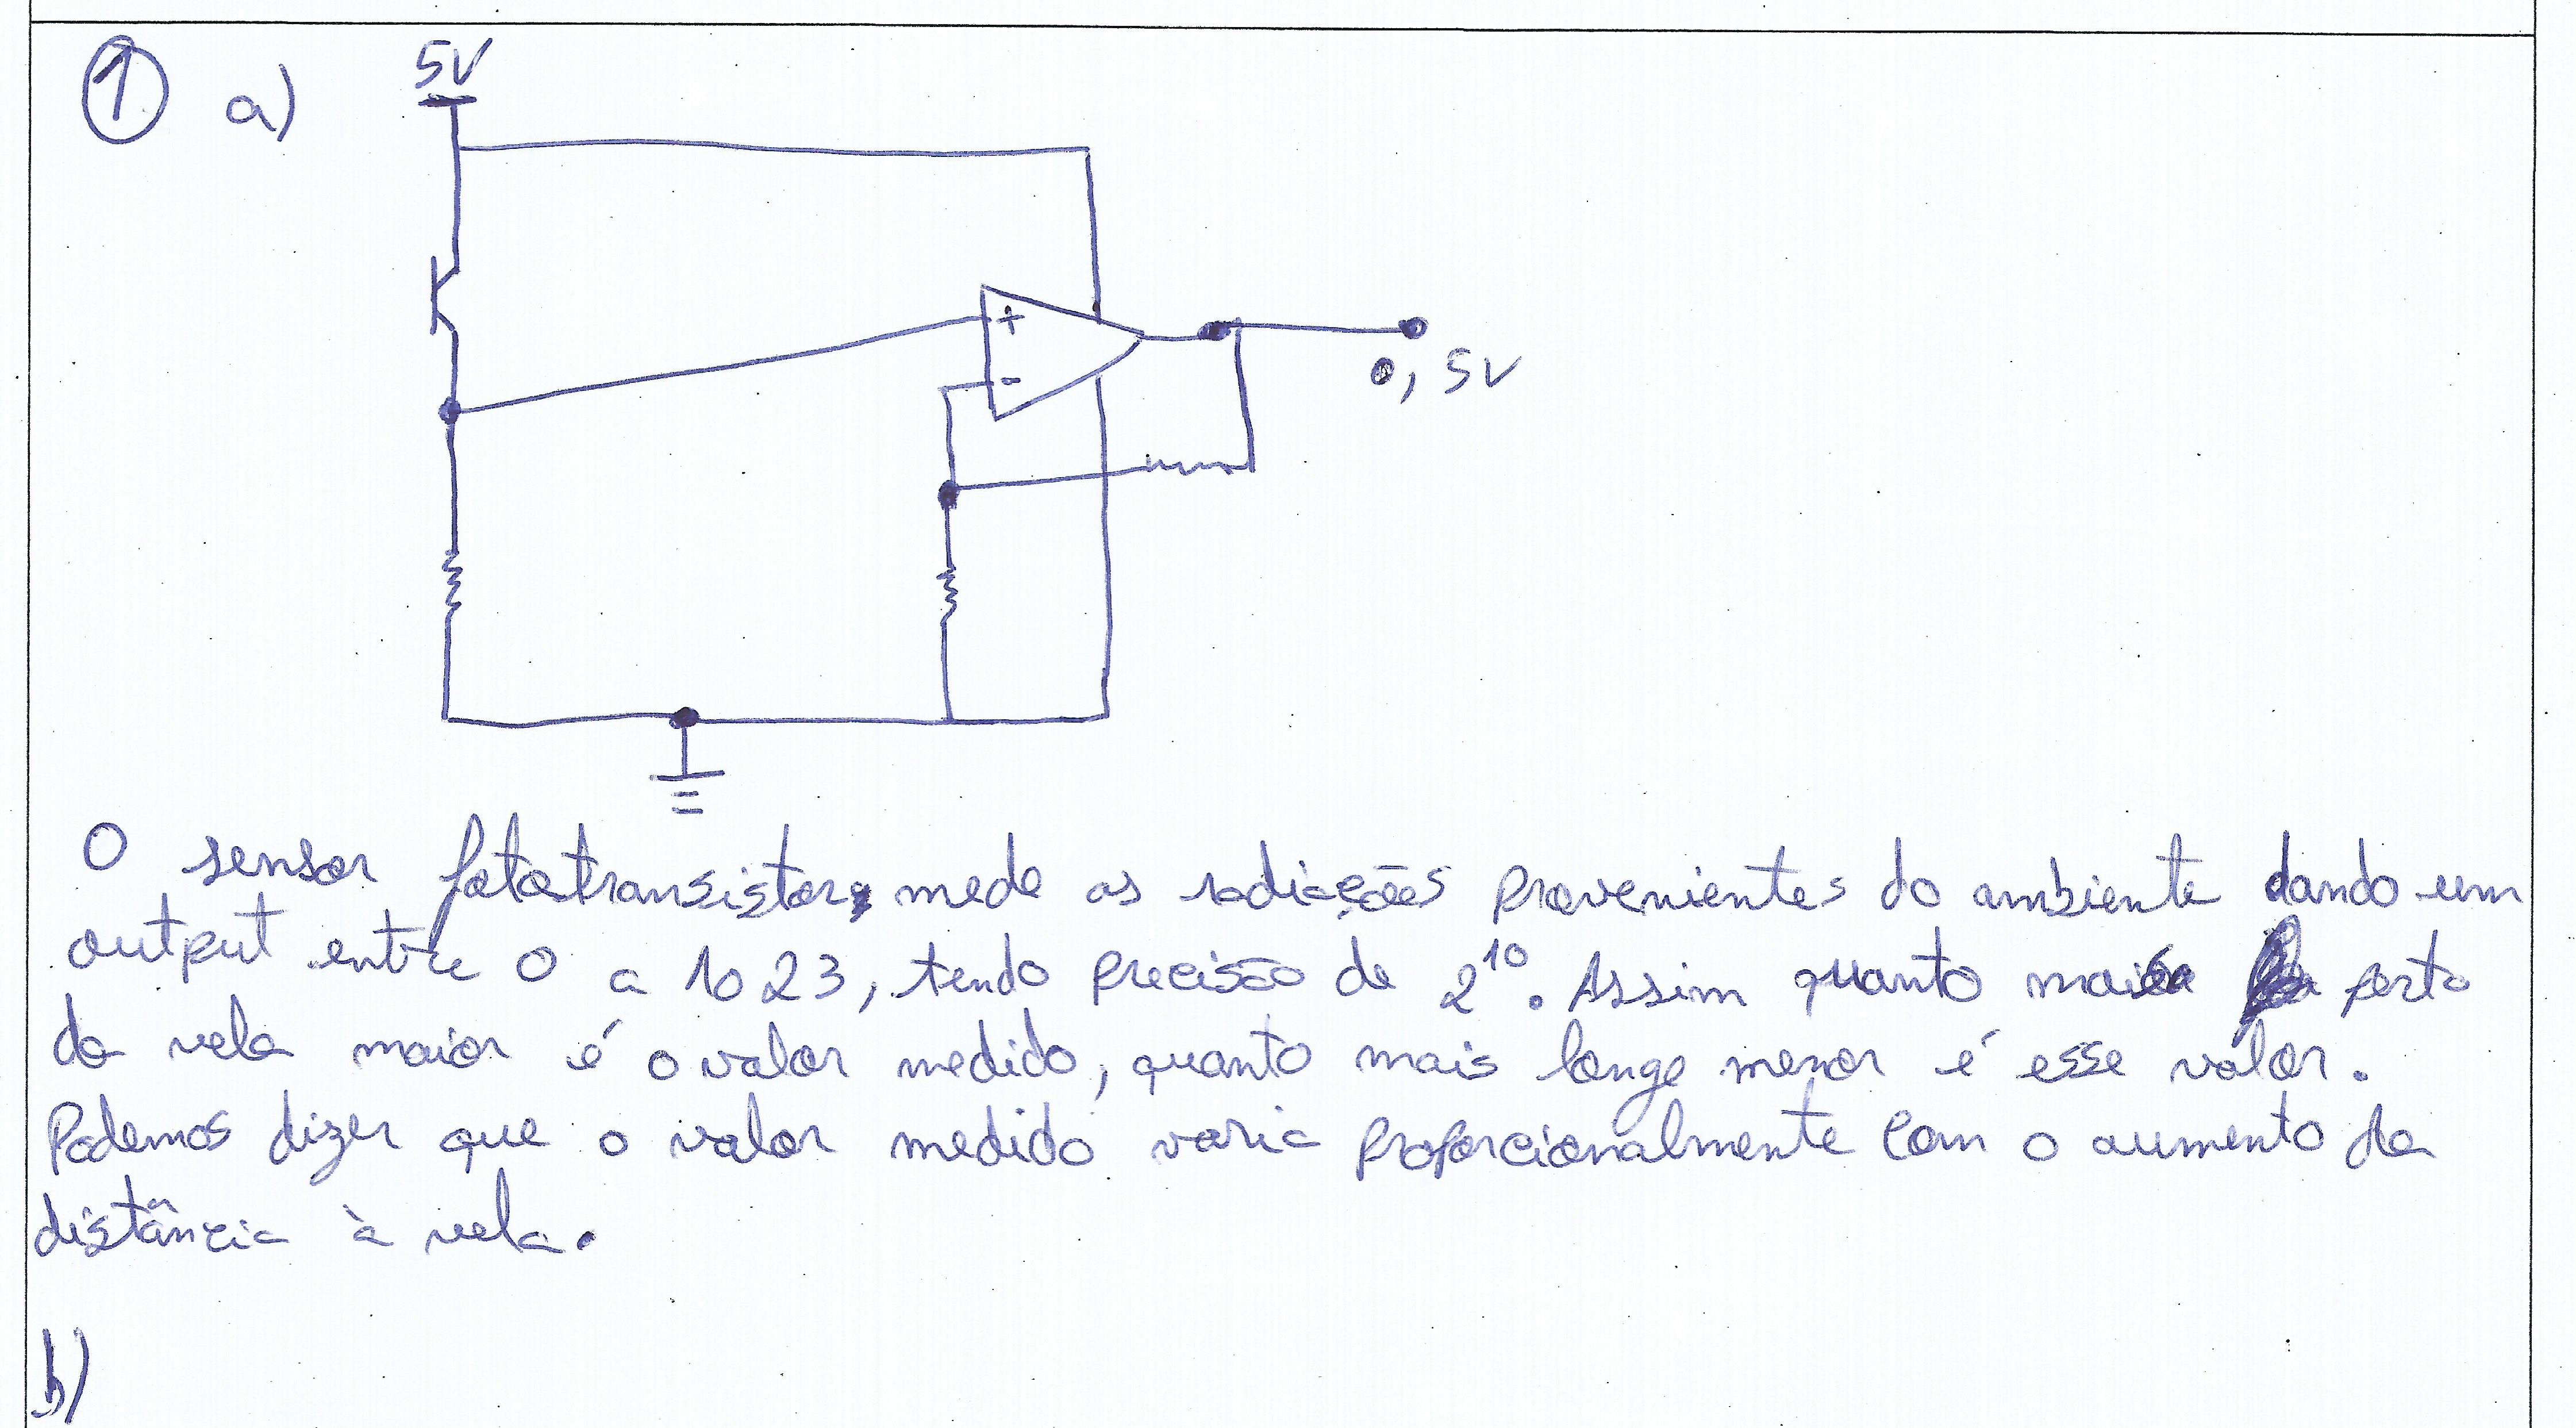 1 a)
5V
+
-
0, 5V
O sensor fototransistor, mede as radiações provenientes do ambiente dando um
output entre 0 a 1023, tendo precisão de 2^10. Assim quanto mais perto
da vela maior é o valor medido, quanto mais longe menor é esse valor.
Podemos dizer que o valor medido varia proporcionalmente com o aumento da
distância à vela.
b)